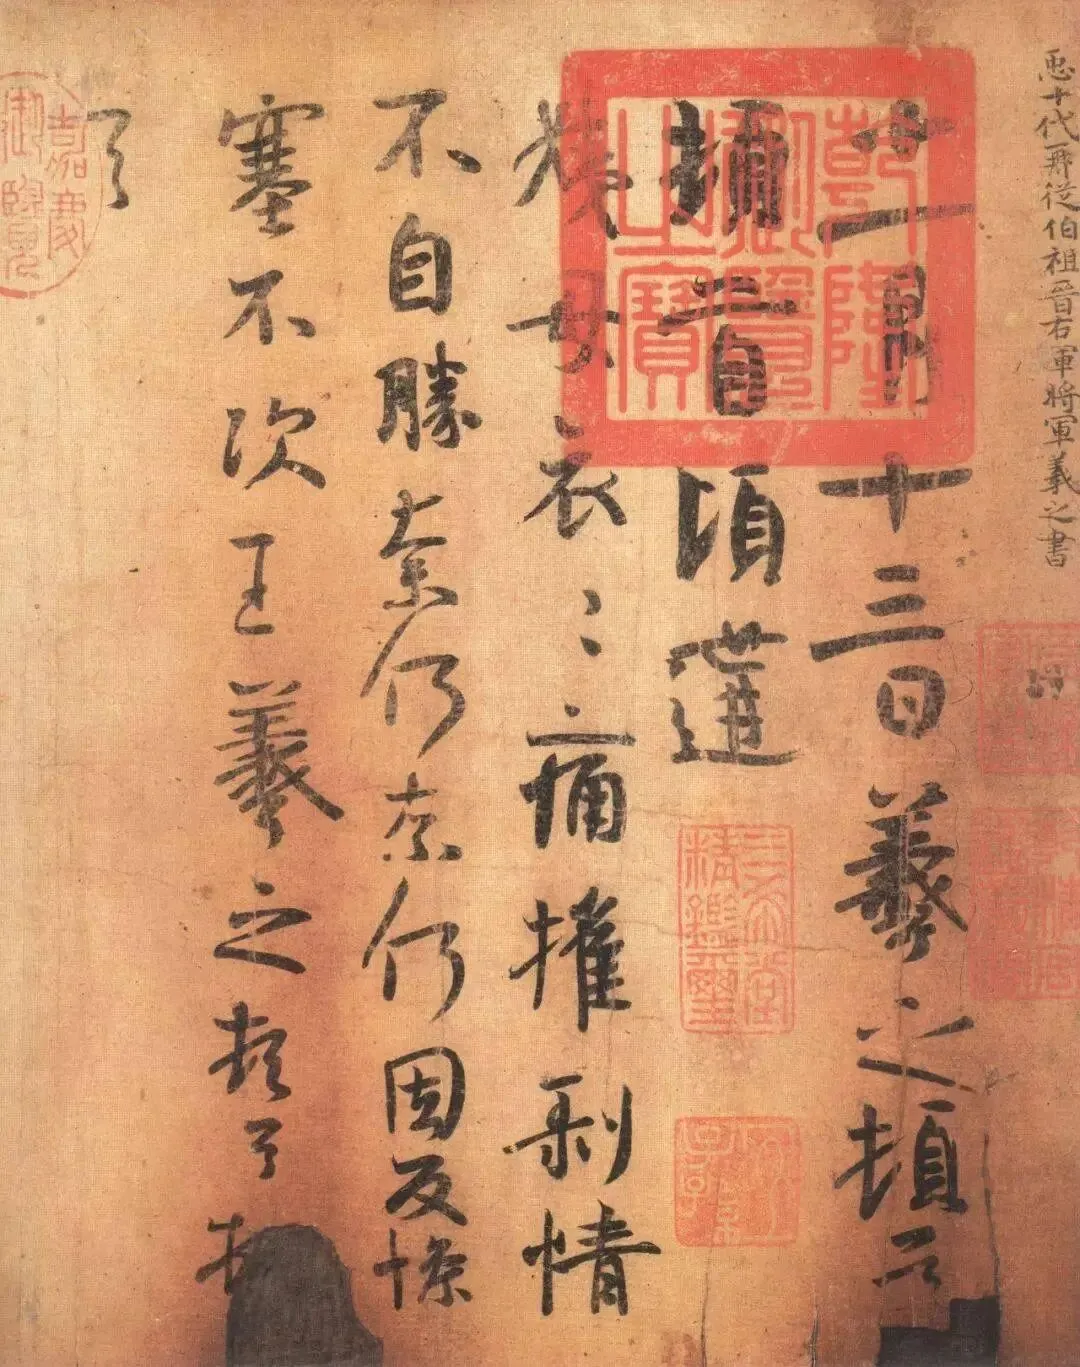 𢘑十代再從伯祖晉右軍將軍羲之書
十一月十三日羲之頓首
頓首頃遘
姨母哀〻痛摧剝情
不自勝奈何奈何因反慘
塞不次王羲之頓首頓
首
乾隆
御覽
之寶
三希堂
精鑑璽
宜
子孫
嘉慶
御覽